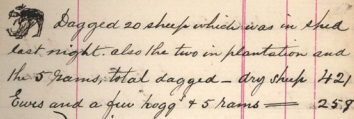 Dagged 20 sheep which was in shed
last night. also the two in plantation and
the 5 rams, total dagged – dry sheep 421
Ewes and a few hogg & 5 rams = 259